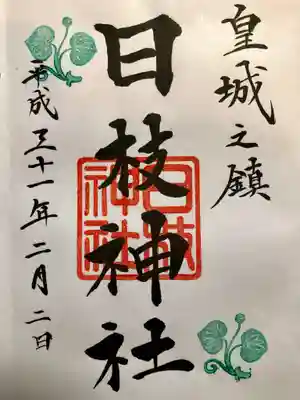 皇城之鎮
日枝神社
日枝神社
平成三十一年二月二日